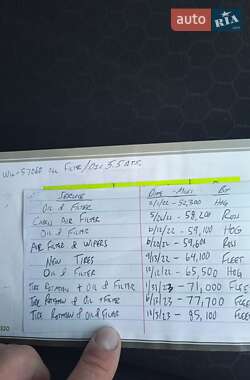 auto RIA
Wix-57060 Oil Filter/Oil 5.5
SERVICE DATE - MILES BY
OIL & FILTER 2/1/22 - 52,300 HOG
CABIN AIR FILTER 5/26/22 - 58,200 RON
OIL & FILTER 6/22 - 59,100 HOG
AIR FILTER & WIPERS 6/22/22 - 59,601 RON
NEW TIRES 9/13/22 - 64,100 FLEET
OIL & FILTER 10/12/22 - 65,500 HOG
TIRE ROTATION + OIL & FILTER 1/31/23 - 71,000 FLEE
TIRE ROTATION & OIL + FILTER 6/13/23 - 77,700 FLEE
TIRE ROTATION & OIL & FILTER 12/5/23 - 85,100 FLE
320